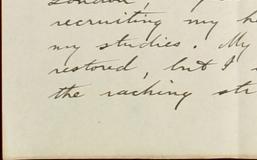 London,
recruiting my he
my studies. My
restored, but I
the racking str